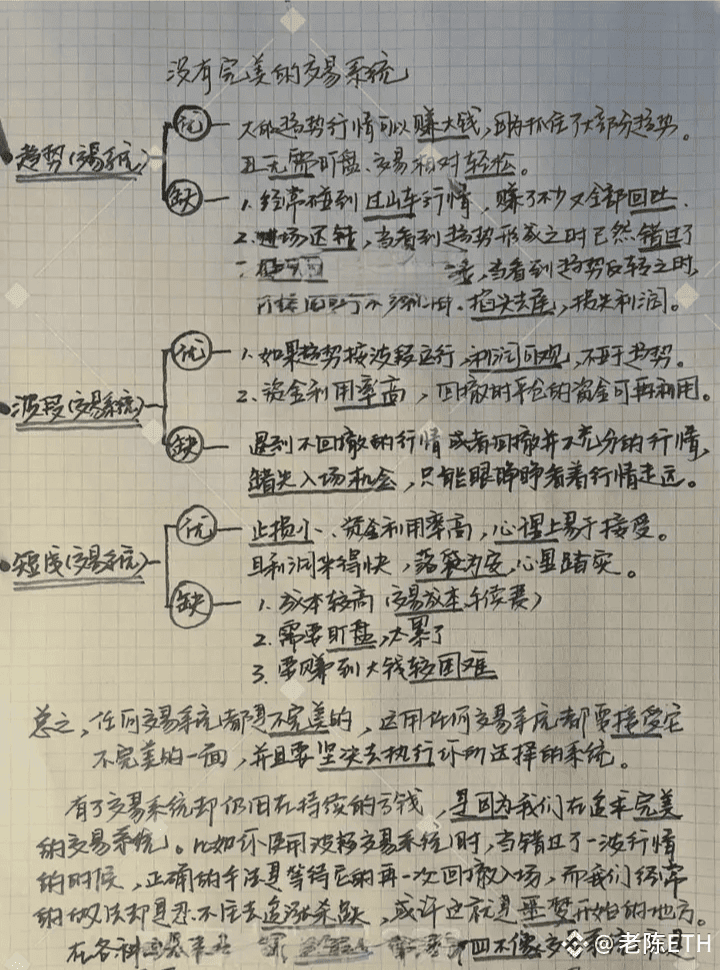 没有完美的交易系统
趋势(交易系统)
优
大的趋势行情可以赚大钱,因为抓住了大部分趋势。
且无需盯盘、交易相对轻松。
缺
1. 经常碰到过山车行情,赚了不少又全部回吐.
2. 进场迟钝,当看到趋势形成之时已然错过了
当看到趋势反转之时,
掐头去尾,损失利润。
波段(交易系统)
优
1. 如果趋势按波段运行,利润可观,不亚于趋势。
2. 资金利用率高,回撤时平仓的资金可再利用。
缺
遇到不回撤的行情或者回撤并不充分的行情,
错失入场机会,只能眼睁睁看着行情走远。
短线(交易系统)
优
止损小、资金利用率高,心理上易于接受。
且利润来得快,落袋为安,心里踏实。
缺
1. 成本较高(交易成本,手续费)
2. 需要盯盘,太累了
3. 要赚到大钱较困难
总之,任何交易系统都是不完美的,选用任何交易系统都要接受它
不完美的一面,并且要坚决去执行你所选择的系统。
有了交易系统却仍旧在持续的亏钱,是因为我们在追求完美
的交易系统。比如你使用波段交易系统时,当错过了一波行情
的时候,正确的手法是等待它的再一次回撤入场,而我们经常
的做法却是忍不住去追涨杀跌,或许这就是噩梦开始的地方。
在各种
四不像
@老陈ETH